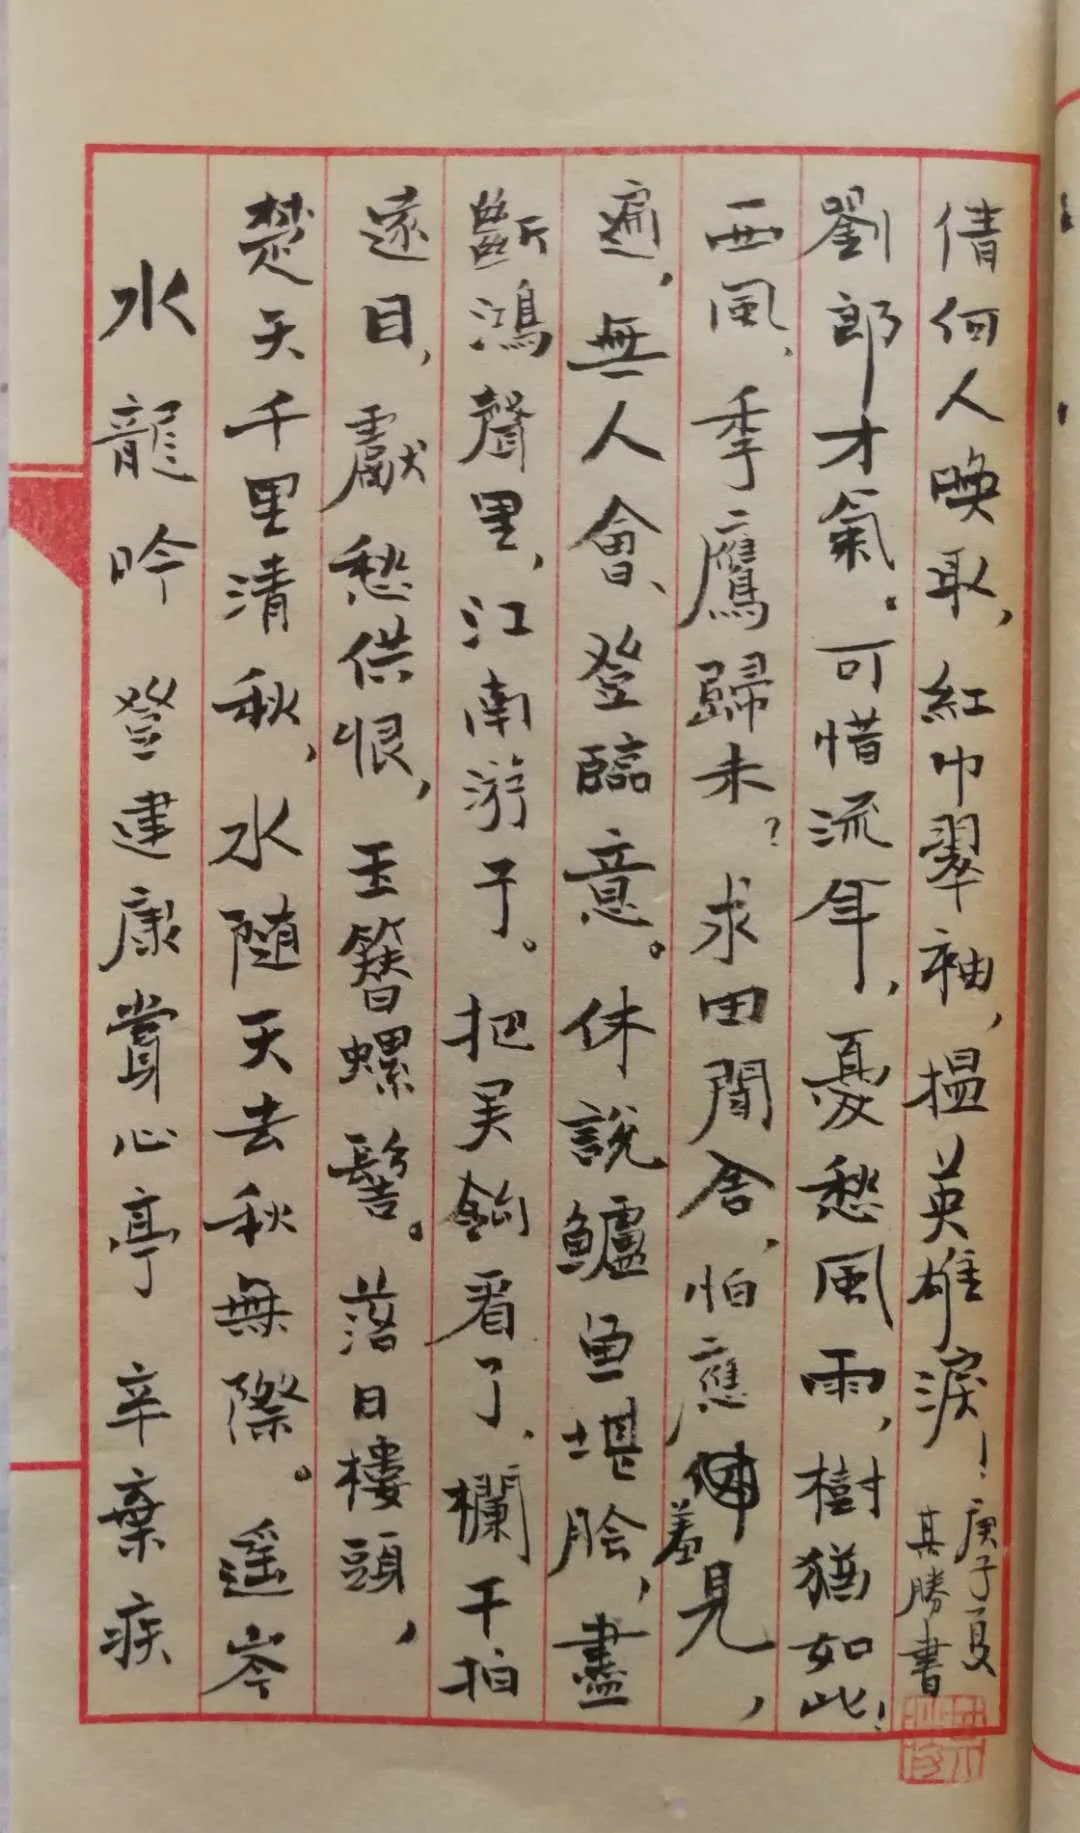 水龍吟 登建康賞心亭 辛棄疾
楚天千里清秋,水随天去秋無際。遥岑
遠目,獻愁供恨,玉簪螺髻。落日樓頭,
斷鴻聲里,江南游子。把吴鈎看了、欄干拍
遍,無人會、登臨意。休說鱸魚堪脍,盡
西風、季鷹歸未?求田聞舍,怕應羞見,
劉郎才氣。可惜流年,憂愁風雨,樹猶如此!
倩何人唤取,紅巾翠袖,揾英雄淚!
庚子夏
其勝書